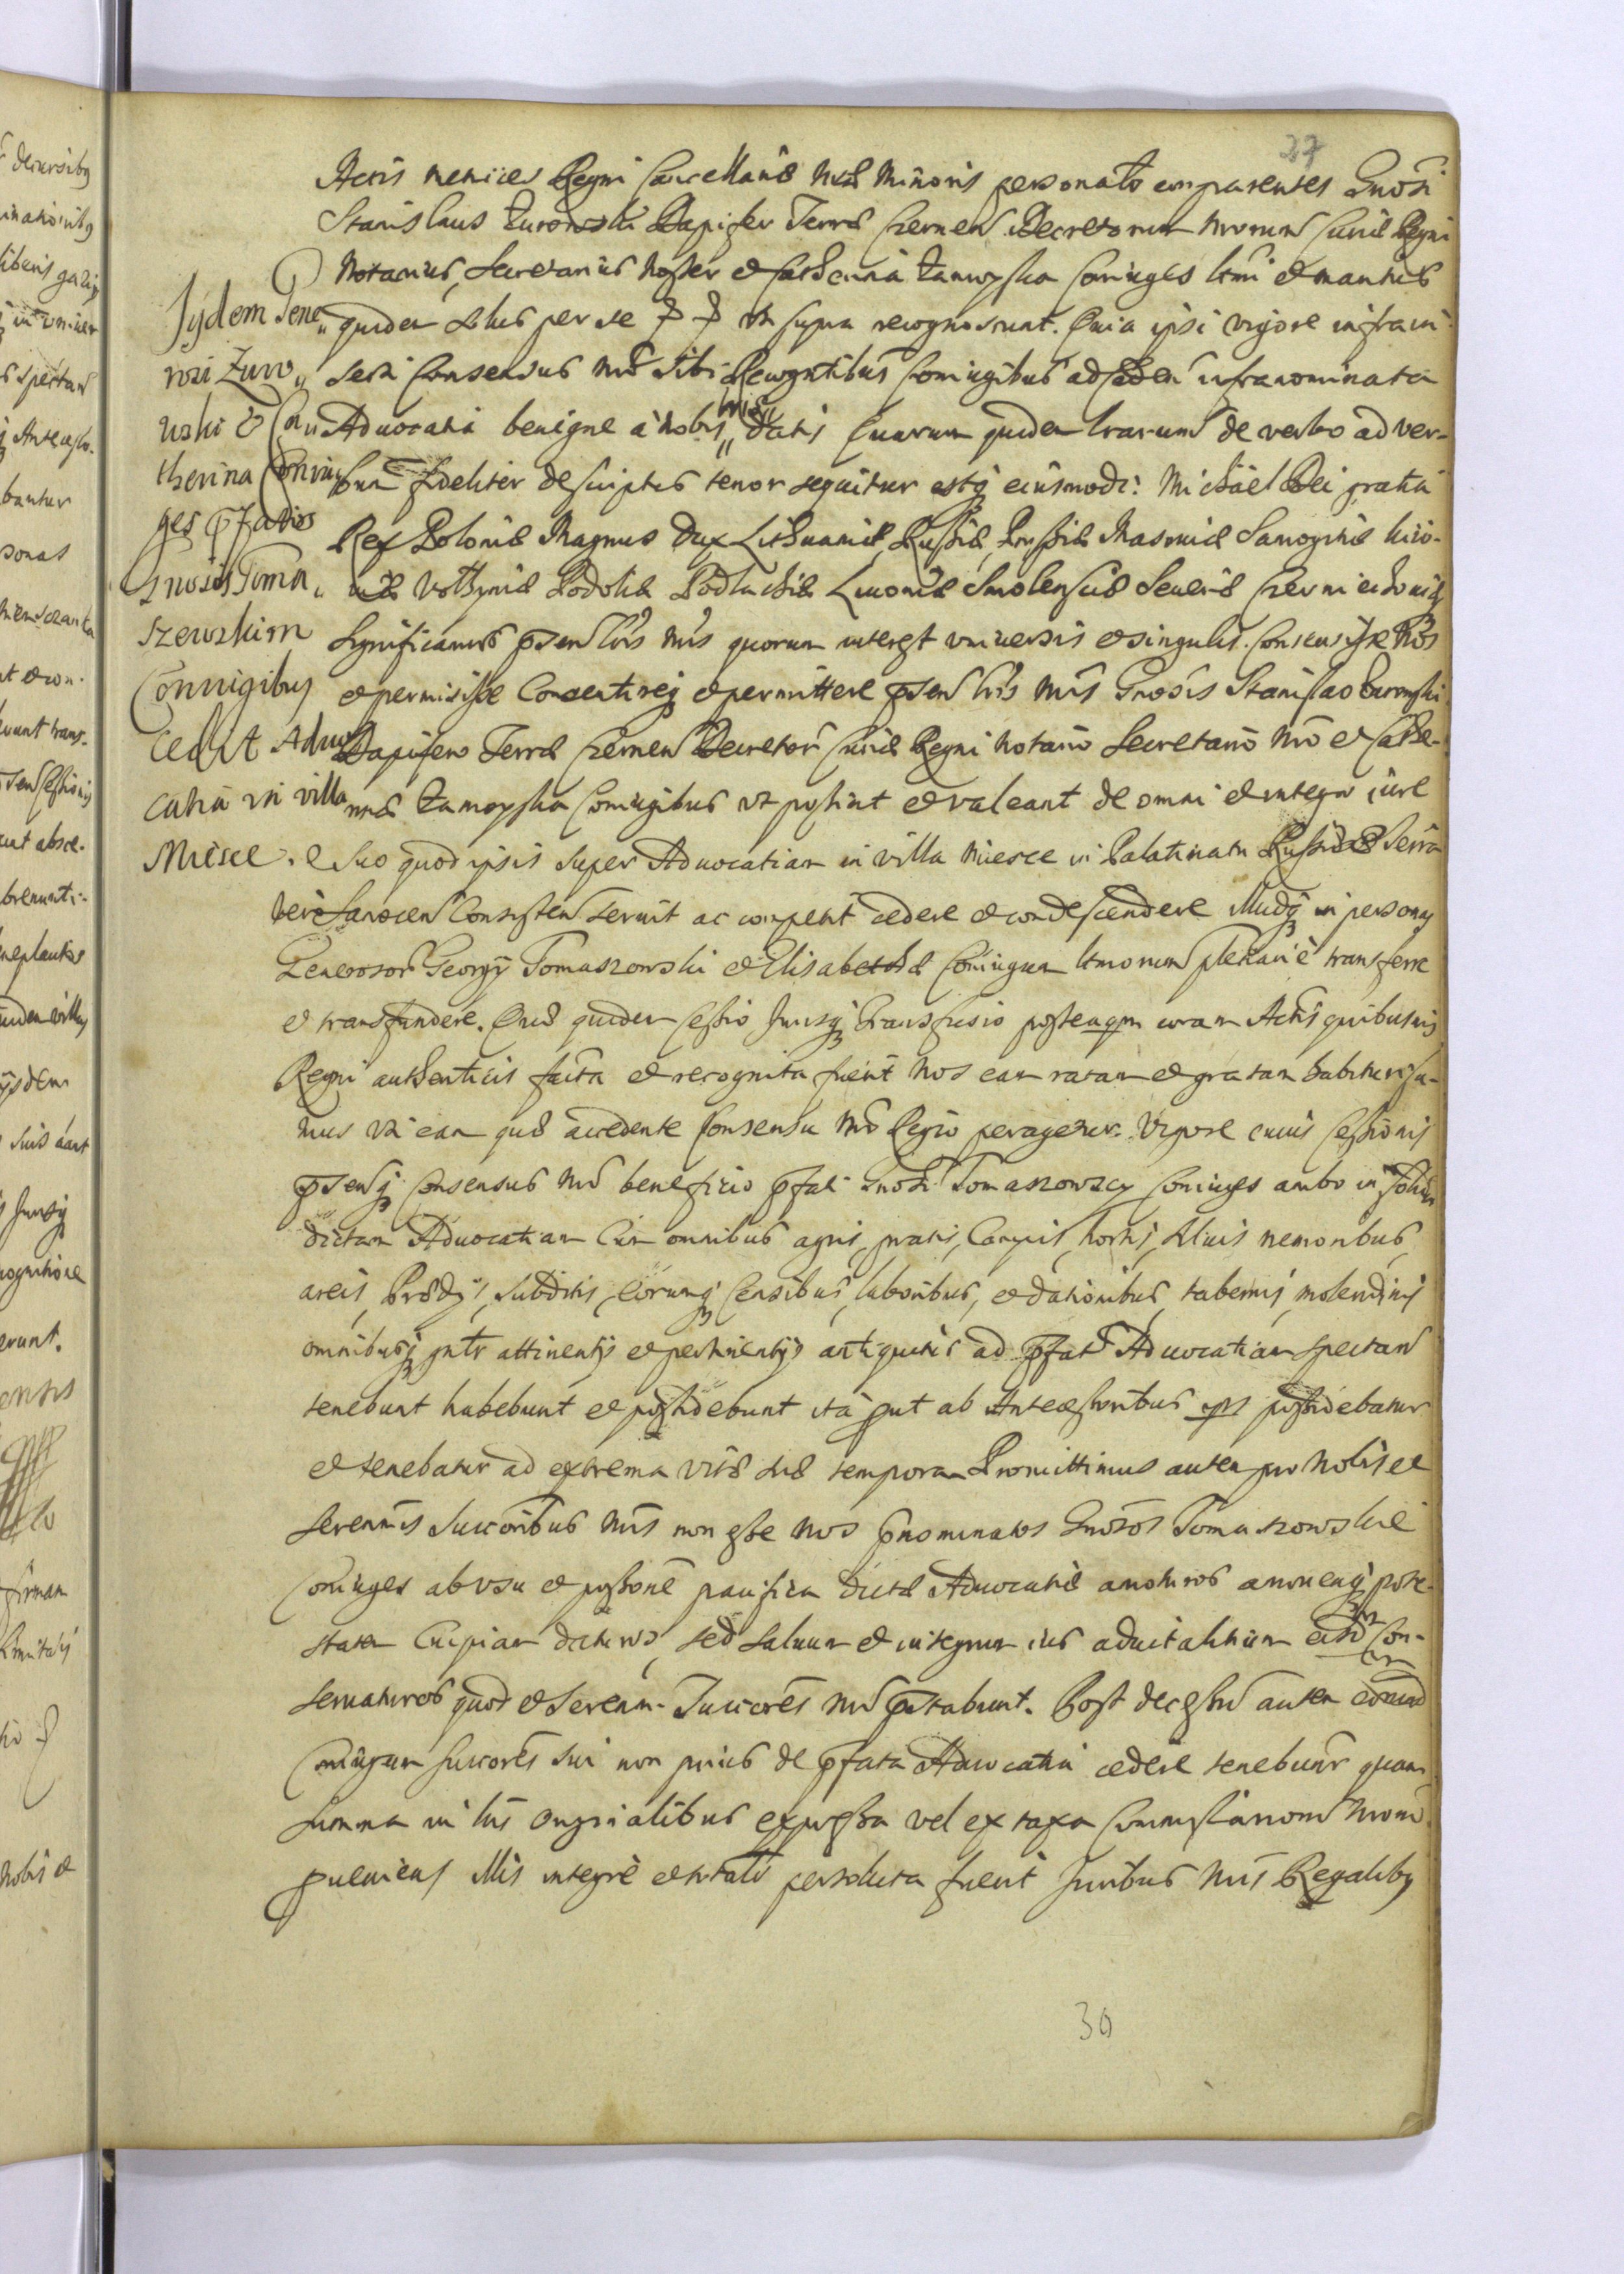 37
Actis metrices Regni Cancellariæ Nræ Minoris personalr comparentes Gnosi
Stanislaus Zurowski Dapifer Terræ Czernen Decretorum Nrorum Curiæ Regni
Notarius, Secretarius Noster et Catherina Zamoyska Coniuges ltmi et maritus
quidem solus per se ut supra recognoverunt. Quia ipsi vigore infra in
serti Consensus Nri sibi Recogntibus Coniugibus ad Cedend infranominata
Advocatia benigne à Nobis dati Quarum quidem lrarum de verbo ad ver-
bum fideliter descriptus tenor sequitur estq eiusmodi: Michael Dei gratia
Rex Poloniæ Magnus Dux Lithuaniæ, Russiæ, Prussiæ Masoviæ Samogitiæ Kiio-
viæ Volhyniæ Podoliæ Podlachiæ Livoniæ Smolensciæ Severiæ Czerniechoviæq
Significamus psen lris nris quorum interest universis et singulis. Consensisse Nos
et permisisse Consentireq et permittere psen lris nris Gnosis Stanislao Zurowski
Dapifero Terræ Czernen Decretor Curiæ Regni Notario Secretario Nro et Cathe-
rinæ Zamoyska Coniugibus ut possint et valeant de omni et integro iure
suo quod ipsis super Advocatiam in villa Miesce in Palatinatu Russiæ Terra
verò Sanocen Consisten servit ac competit cedere et condescendere illudq in personas
Generosor Georgy Tomaszowski et Elisabethæ Coniugum ltmorum plenariè transferre
et transfundere. Quæ quidem Cessio Jurisq transfusio posteaqm coram Actis quibusvis
Regni authenticis facta et recognita fuerit Nos eam ratam et gratam habituri su-
mus uti eam quæ accedente Consensu Nro Regio peragetur. Vigore cuius Cessionis
psenq Consensus Nri beneficio pfati Gnosi Tomaszowscy Coniuges ambo in solidum
dictam Advocatiam Cum omnibus agris, pratis, Campis, hortis, silvis nemoribus,
areis, Prædijs, subditis, eorumq Censibus, laboribus, et dationibus, tabernis, molendinis
omnibusq gntr attinentijs et pertinentijs antiquitus ad pfatã Advocatiam spectan
tenebunt habebunt et possidebunt ità put ab Antecessoribus ipsor possidebatur
et tenebatur ad extrema vitæ suæ tempora. Promittimus autem pro Nobis et
Serenmis Succoribus Nris non esse Nos pnominatos Gnosos Tomaszowskie
Coniuges ab usu et possone pacifica dictæ Advocatiæ amoturos amovendiq pote-
statem Cuipiam daturos, sed salvum et integrum ius advitalitium eisd Con-
servaturos quod et Serenmi Succores Nri pstabunt. Post decessum autem eorund
Coniugum succores sui non prius de pfata Advocatia cedere tenebuntr quam
summa in lris Originalibus expressa vel ex taxa Commissariorum Nrorum
pveniens illis integrè et totalr persoluta fuerit Juribus Nris Regalibq
Jydem Gene„
rosi Zuro„
wski et Ca„
therina Coniu
ges Pfatis
Gnosis Toma„
szewskim
Coniugibus
cedut Advo
catiã in villa
Miesce.
30